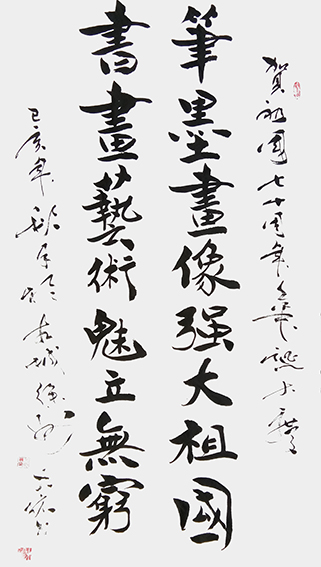 賀祖國七十周年華誕大慶
筆墨畫像强大祖國
書畫藝術魅立無窮
己亥年秋月於古城